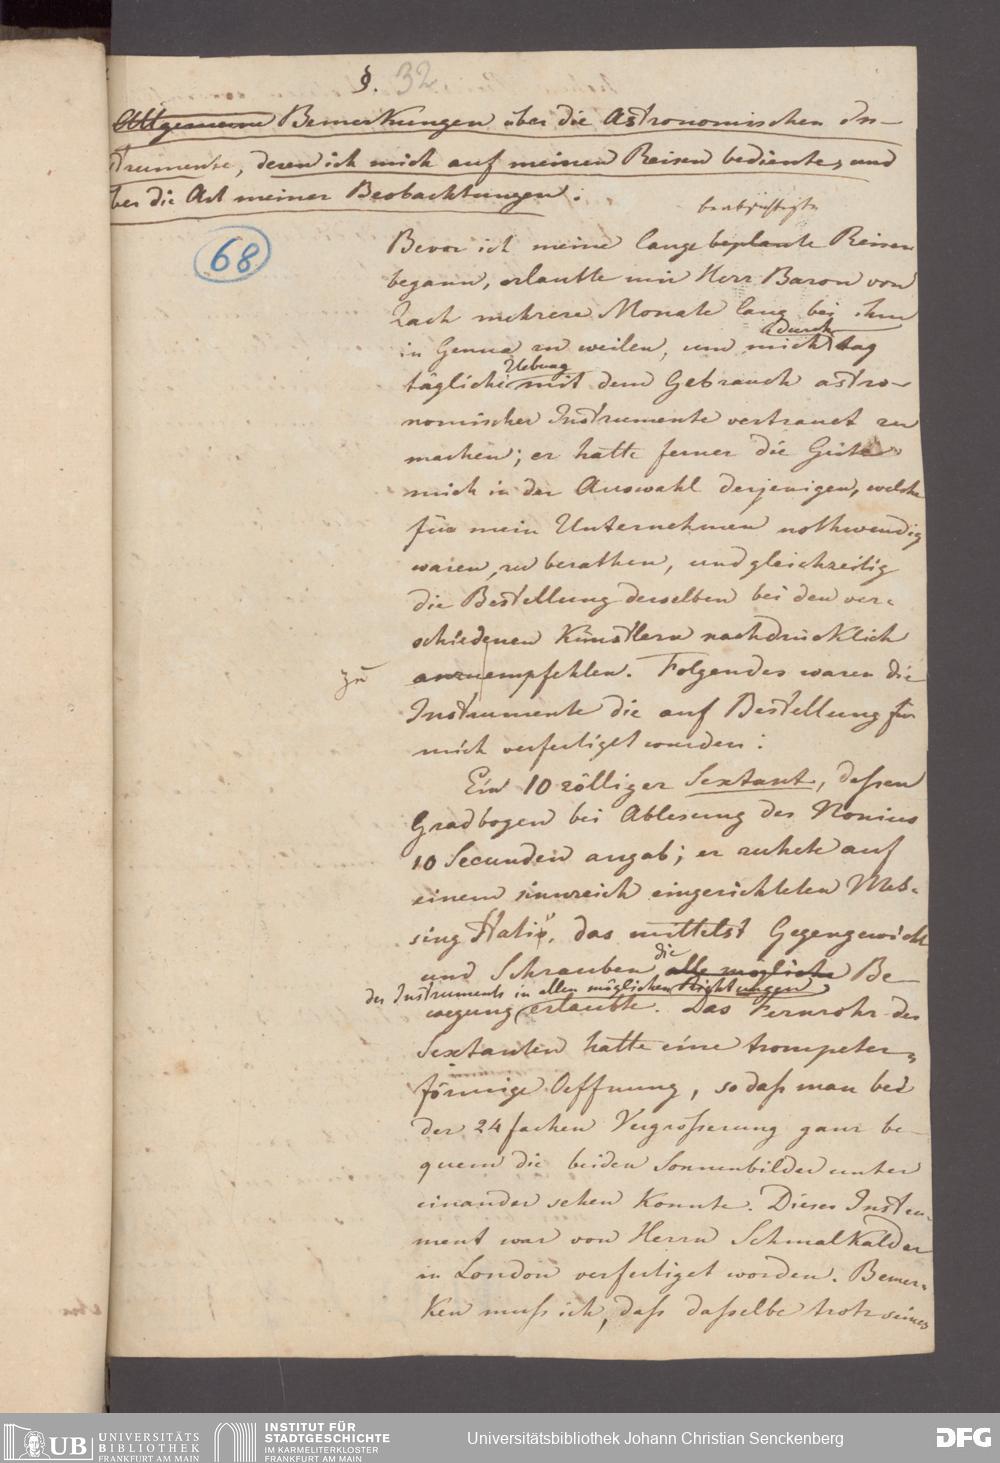 §. 32
Allgemeine Bemerkungen über die Astronomischen In-
strumente, deren ich mich auf meinen Reisen bediente, und
ber die Art meiner Beobachtungen.
beabsichtigte
68
Bevor ich meine lange beplante Reisen
begann, erlaubte mir Herr Baron von
Zach mehrere Monate lang bei ihm
in Genua zu weilen, und mich durch tag
tägliche Uebung mit dem Gebrauch astro-
nomischer Instrumente vertraut zu
machen; er hatte ferner die Güte
mich in der Auswahl derjenigen, welche
für mein Unternehmen nothwendig
waren, zu berathen, und gleichzeitig
die Bestellung derselben bei den ver-
schiedenen Künstlern nachdrücklich
zu anzuempfehlen. Folgendes waren die
Instrumente die auf Bestellung für
mich verfertiget wurden:
Ein 10 zölliger Sextant, dessen
Gradbogen bei Ablesung des Nonius
10 Secunden angab; er ruhete auf
einem sinnreich eingerichteten Mes-
sing Stativ, das mittelst Gegengewicht
und Schrauben die alle mögliche Be-
des Instruments in allen möglichen Richtungen
wegung erlaubte. Das Fernrohr des
Sextanten hatte eine trompeten-
förmige Oeffnung, so daß man bei
der 24 fachen Vergrößerung ganz be-
quem die beiden Sonnenbilder unter
einander sehen konnte. Dieses Instru-
ment war von Herrn Schmalkalder
in London verfertiget worden. Bemer-
ken muß ich, daß dasselbe trotz seines
UB UNIVERSITÄTS
BIBLIOTHEK
FRANKFURT AM MAIN
INSTITUT FÜR
STADTGESCHICHTE
IM KARMELITERKLOSTER
FRANKFURT AM MAIN
Universitätsbibliothek Johann Christian Senckenberg
DFG